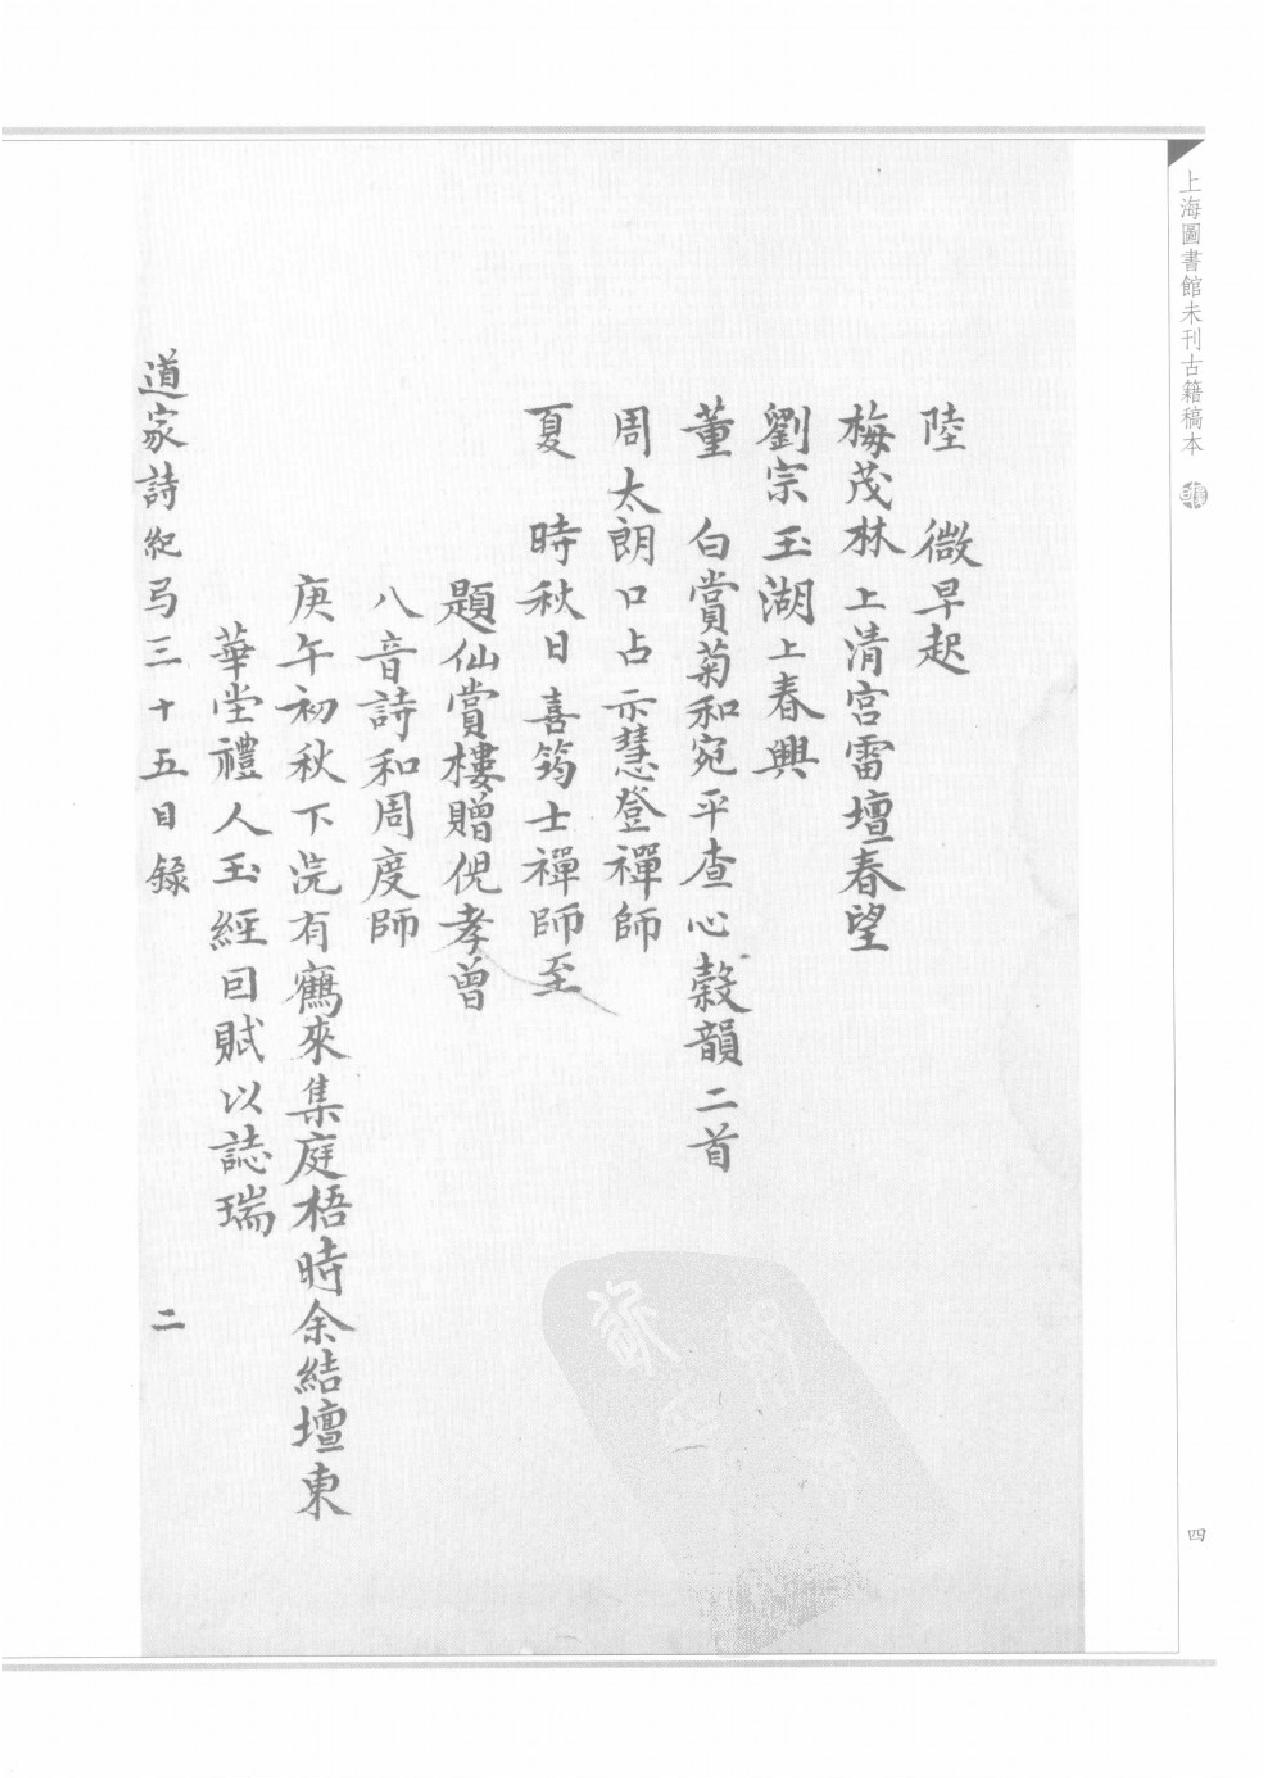 上海圖書館未刊古籍稿本
四
陸　微早起
梅茂林上清宮雷壇春望
劉宗玉湖上春興
董　白賞菊和宛平查心穀韻二首
周太朗口占示慧登禪師
夏　時秋日喜筠士禪師至
題仙賞樓贈倪孝曾
八音詩和周度師
庚午初秋下浣有鶴來集庭梧時余結壇東
華堂禮人玉經回賦以誌瑞
道家詩紀弓三十五目録　二